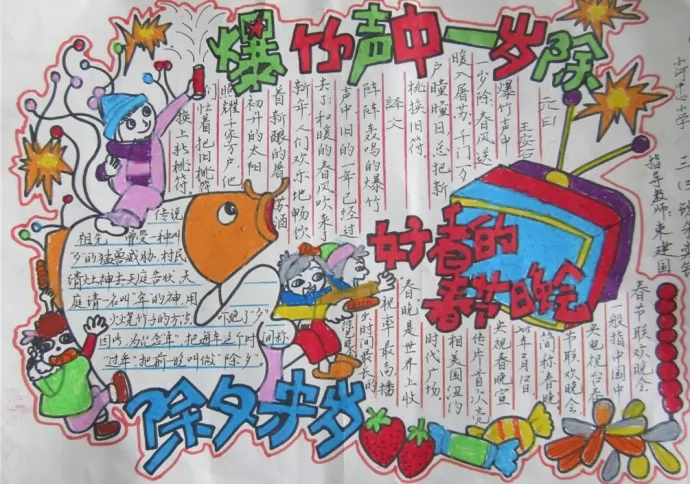 爆竹声中一岁除
元日
王安石
爆竹声中
一岁除,春风送
暖入屠苏。千门万
户瞳瞳日,总把新
桃换旧符。
译文
阵阵轰鸣的爆竹
声中旧的一年已经过
去了;和暖的春风吹来了
新年,人们欢乐地畅饮
着新酿的屠苏酒
初升的太阳
照耀千家万户,他
们忙着把旧桃符
换上新桃符。
传说
祖先曾受一种叫
夕的猛兽威胁.村民
请灶神去天庭告状,天
庭请一名叫“年”的神,用
火烧竹子的方法,吓跑了“夕”
因此,为纪念“年”把每年这个时间称
“过年”,把前一晚叫做“除夕”。
好看的
春节晚会
春节联欢晚会
一般指中国中
央电视台春
节联欢晚会
简称春晚
2015年2月12日
央视春晚宣
传片首次亮
相美国纽约
时代广场
“春晚是世界上收
视率最高播
出时间最长的
除夕来岁
小河中心小学
指导教师:束建国